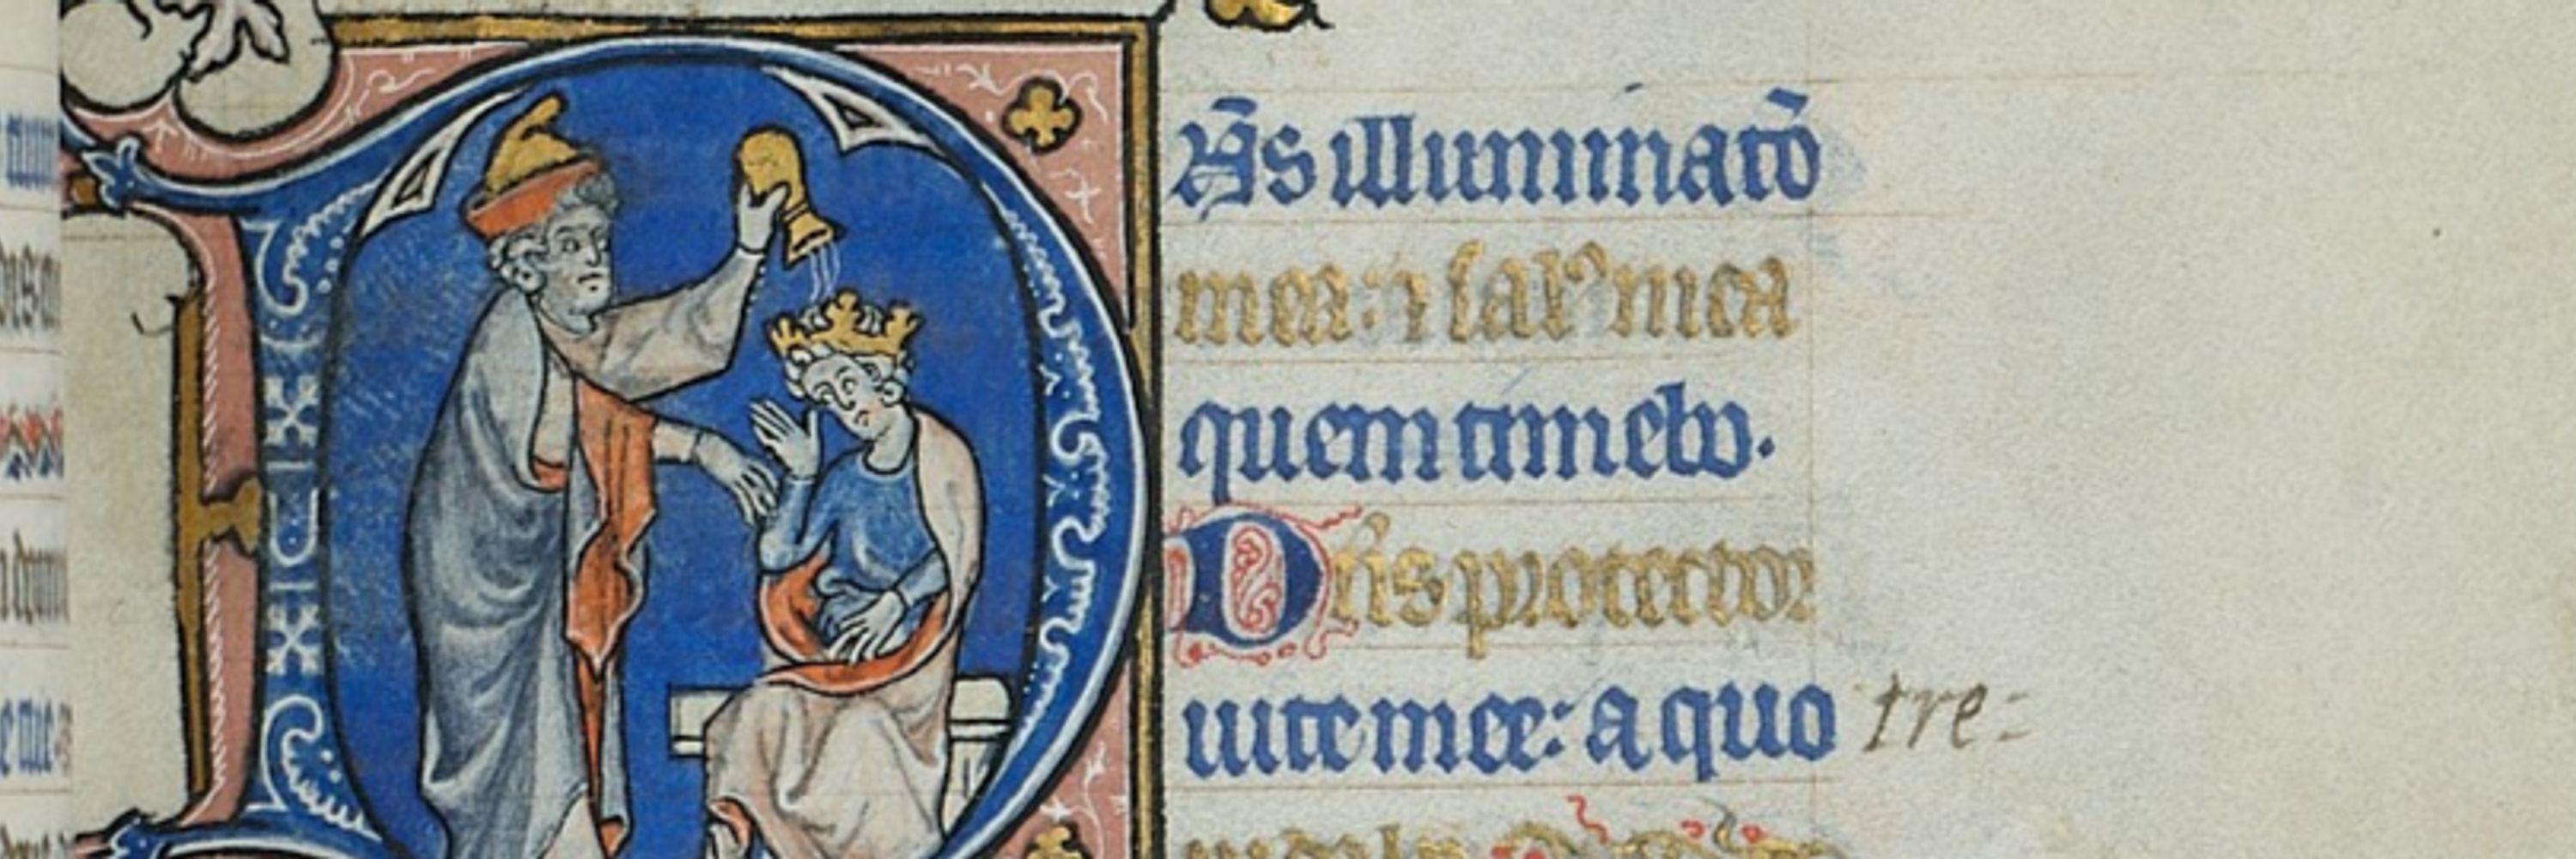 Dn̄s illuminatō
mea: ⁊ salꝰ mea
quem timebo.
Dn̄s protector
uite mee: a quo tre=